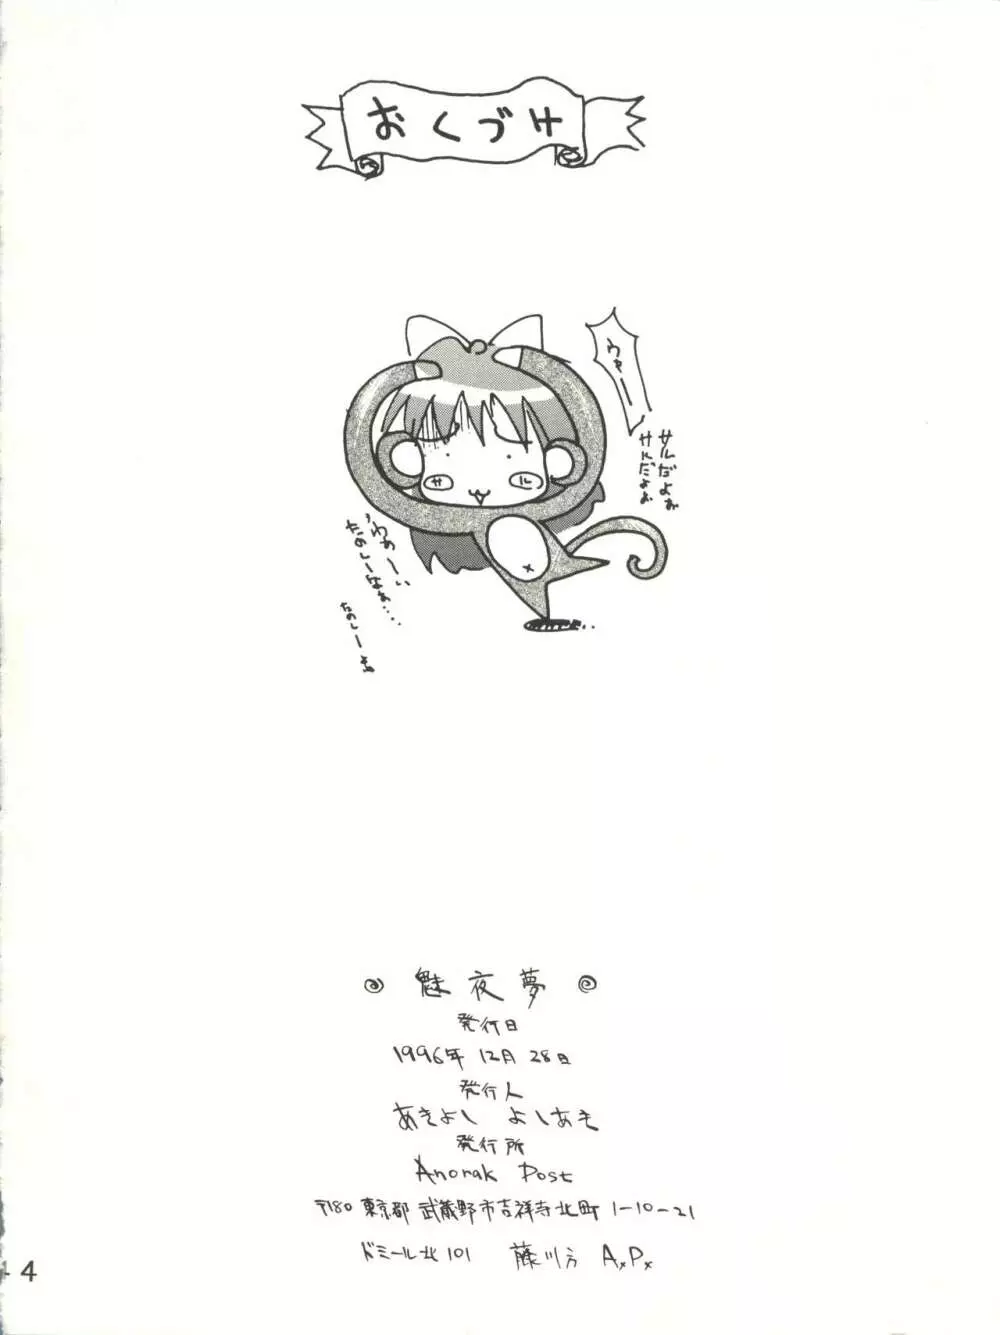 おくづけ
ウキーー
サルだよぉ
サルだよぉ
サ
ル
うわぁーーい
たのしーなぁ・・・・
たのしーよ
魅夜夢
発行日
1996年 12月 28日
発行人
あきよし よしあき
発行所
Anorak Post
〒180 東京都 武蔵野市吉祥寺北町 1-10-21
ドミール北 101 藤川方 A.P.
4